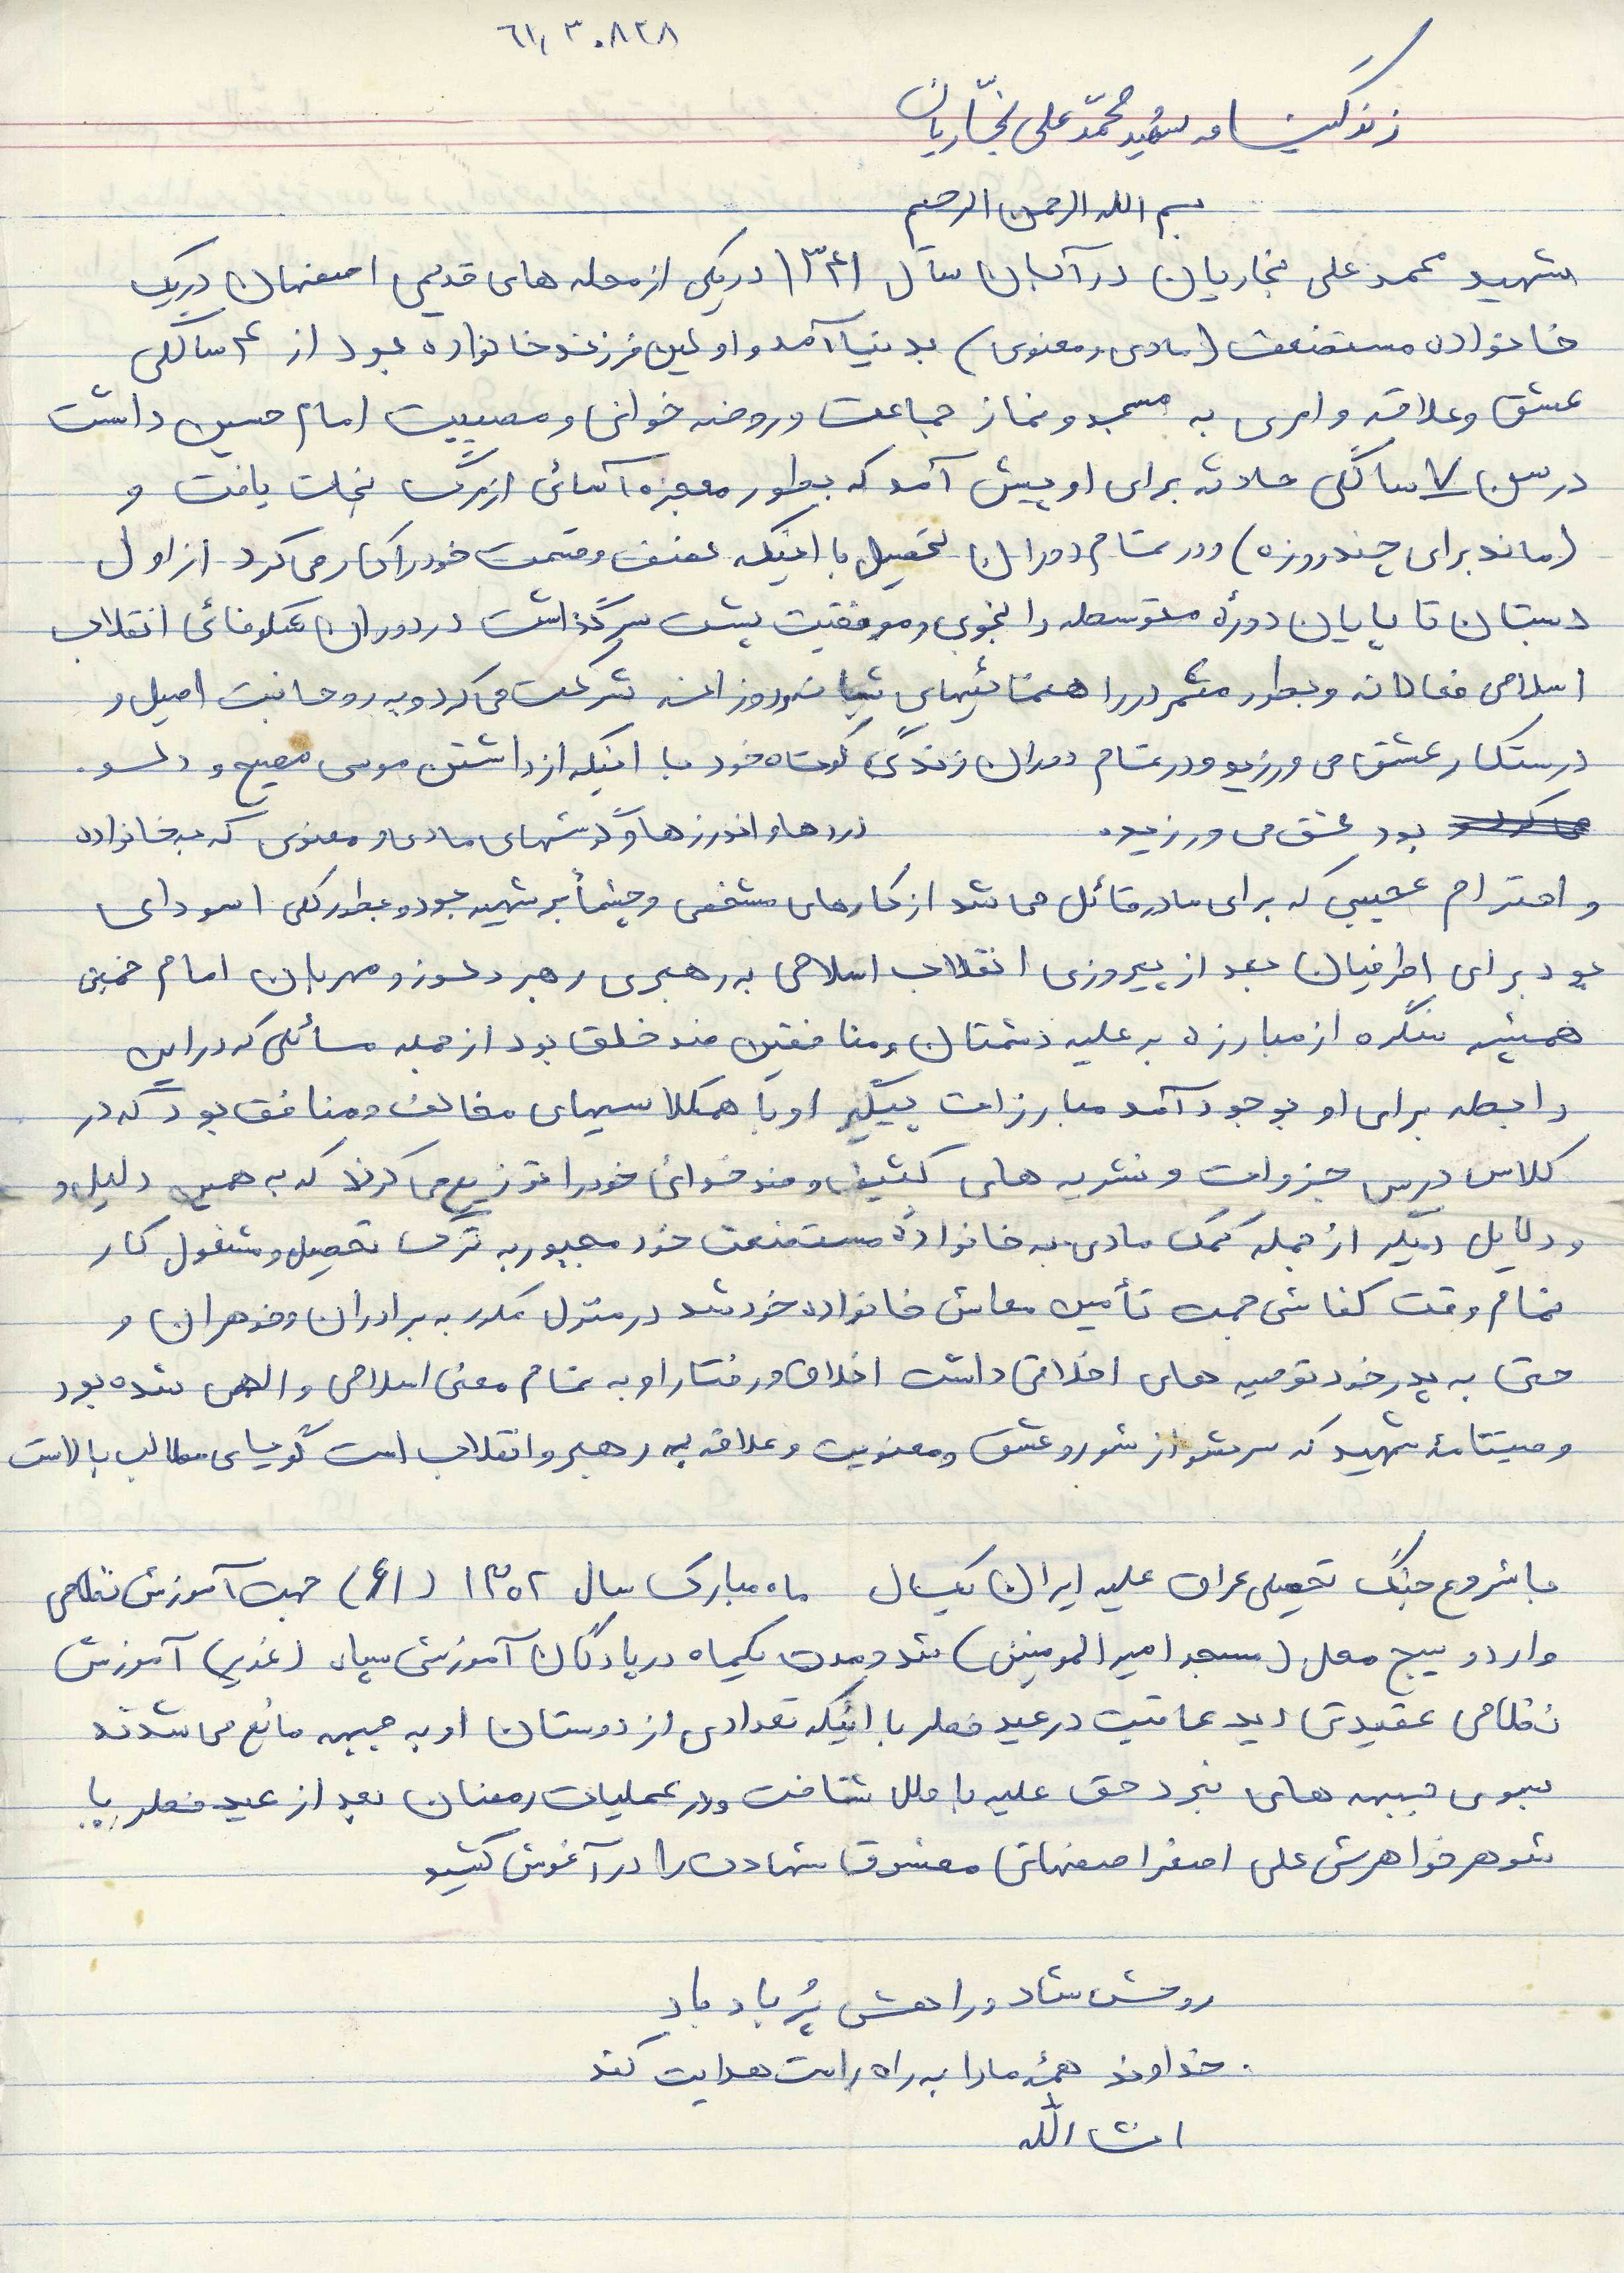 ۶۱٫۳۰۸۲۸
زندگینامه شهید محمّد علی نجّاریان
بسم الله الرحمن الرحیم
شهید محمد علی نجاریان در آبان سال ۱۳۴۱ در یکی از محله های قدیمی اصفهان در یک
خانواده مستضعف (مادی و معنوی) بدنیا آمد و اولین فرزند خانواده بود از ۴ سالگی
عشق و علاقه وافری به مسجد و نماز جماعت و روضه خوانی و مصیبت امام حسین داشت
در سن ۷ سالگی حادثه برای او پیش آمد که بطور معجزه آسائی از مرگ نجات یافت و
(ماند برای چند روزه) و در تمام دوران تحصیل با اینکه نصف وقت خود را کار می کرد از اول
دبستان تا پایان دورهٔ متوسطه را بخوبی و موفقیت پشت سر گذاشت در دوران شکوفائی انقلاب
اسلامی فعالانه و بطور مثمر در راهپیمائیهای شبانه و روزانه شرکت می کرد و به روحانیت اصیل و
درستکار عشق می ورزید و در تمام دوران زندگی کوتاه خود با اینکه از داشتن
بود عشق می ورزید. دردها و اندرزها و کوششهای مادی و معنوی که به خانواده
و احترام عجیبی که برای مادر قائل می شد از کارهای مشخص شهید بود و بطور کلی اسوه ای
بود برای اطرافیان بعد از پیروزی انقلاب اسلامی به رهبری رهبر دلسوز و مهربان امام خمینی
همیشه سنگره از مبارزه بر علیه دشمنان و منافقین ضد خلق بود از جمله مسائلی که در این
رابطه برای او بوجود آمد مبارزات پیگیر او با همکلاسیهای مخالف و منافق بود که در
کلاس درس جزوات و نشریه های کثیف و ضد خدائی خود را توزیع می کردند که به همین دلیل و
و دلایل دیگر از جمله کمک مادی به خانوادهٔ مستضعف خود مجبور به ترک تحصیل و مشغول کار
تمام وقت کفاشی جهت تأمین معاش خانواده خود شد در منزل مکرر به برادران و خوهران و
حتی به پدر خود توصیه های اخلاقی داشت اخلاق و رفتار او به تمام معنی اسلامی و الهی شده بود
وصیتنامهٔ شهید که سرشار از شور و عشق و معنویت و علاقه به رهبر و انقلاب است گویای مطالب بالاست
با شروع جنگ تحمیلی عراق علیه ایران یکسال ماه مبارک سال ۱۳۰۲ (۶۱) جهت آموزش نظامی
وارد بسیج محل (مسجد امیر المومنین) شد و مدت یکماه در پادگان آموزشی سپاه (غدیر) آموزش
نظامی عقیدتی دید عاقبت در عید فطر با اینکه تعدادی از دوستان او به جبهه مانع می شدند
بسوی جبهه های نبرد حق علیه باطل شتافت و در عملیات رمضان بعد از عید فطر با
شوهر خواهرش علی اصغر اصفهانی معشوق شهادت را در آغوش کشید
روحش شاد و راهش پُر باد باد
خداوند همهٔ ما را به راه راست هدایت کند
انشاالله